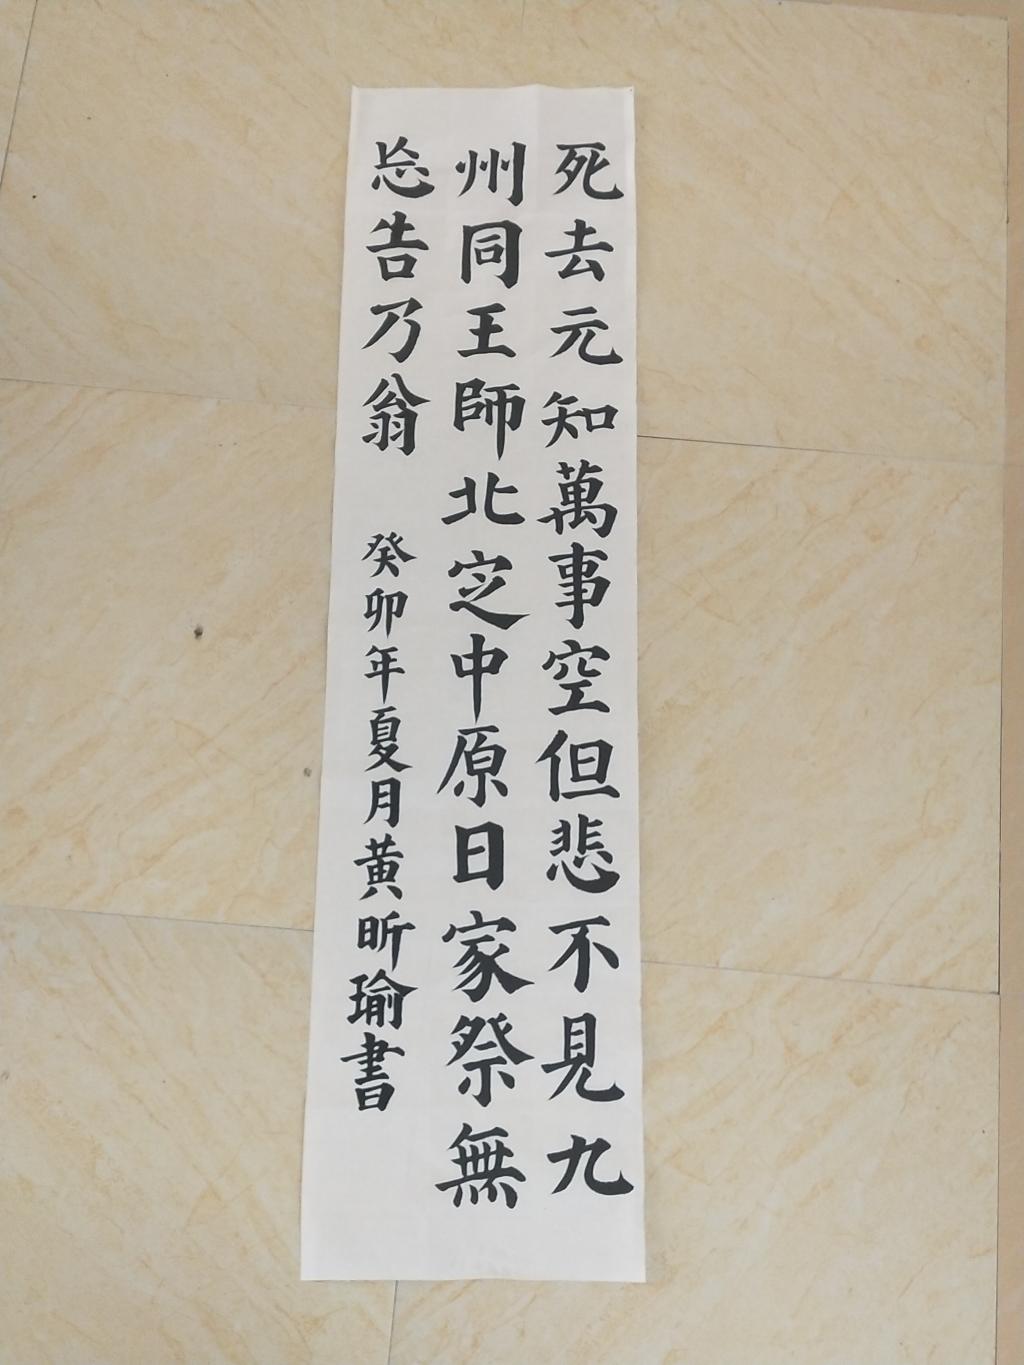 死去元知萬事空但悲不見九
州同王師北定中原日家祭無
忘告乃翁 癸卯年夏月黄昕瑜書